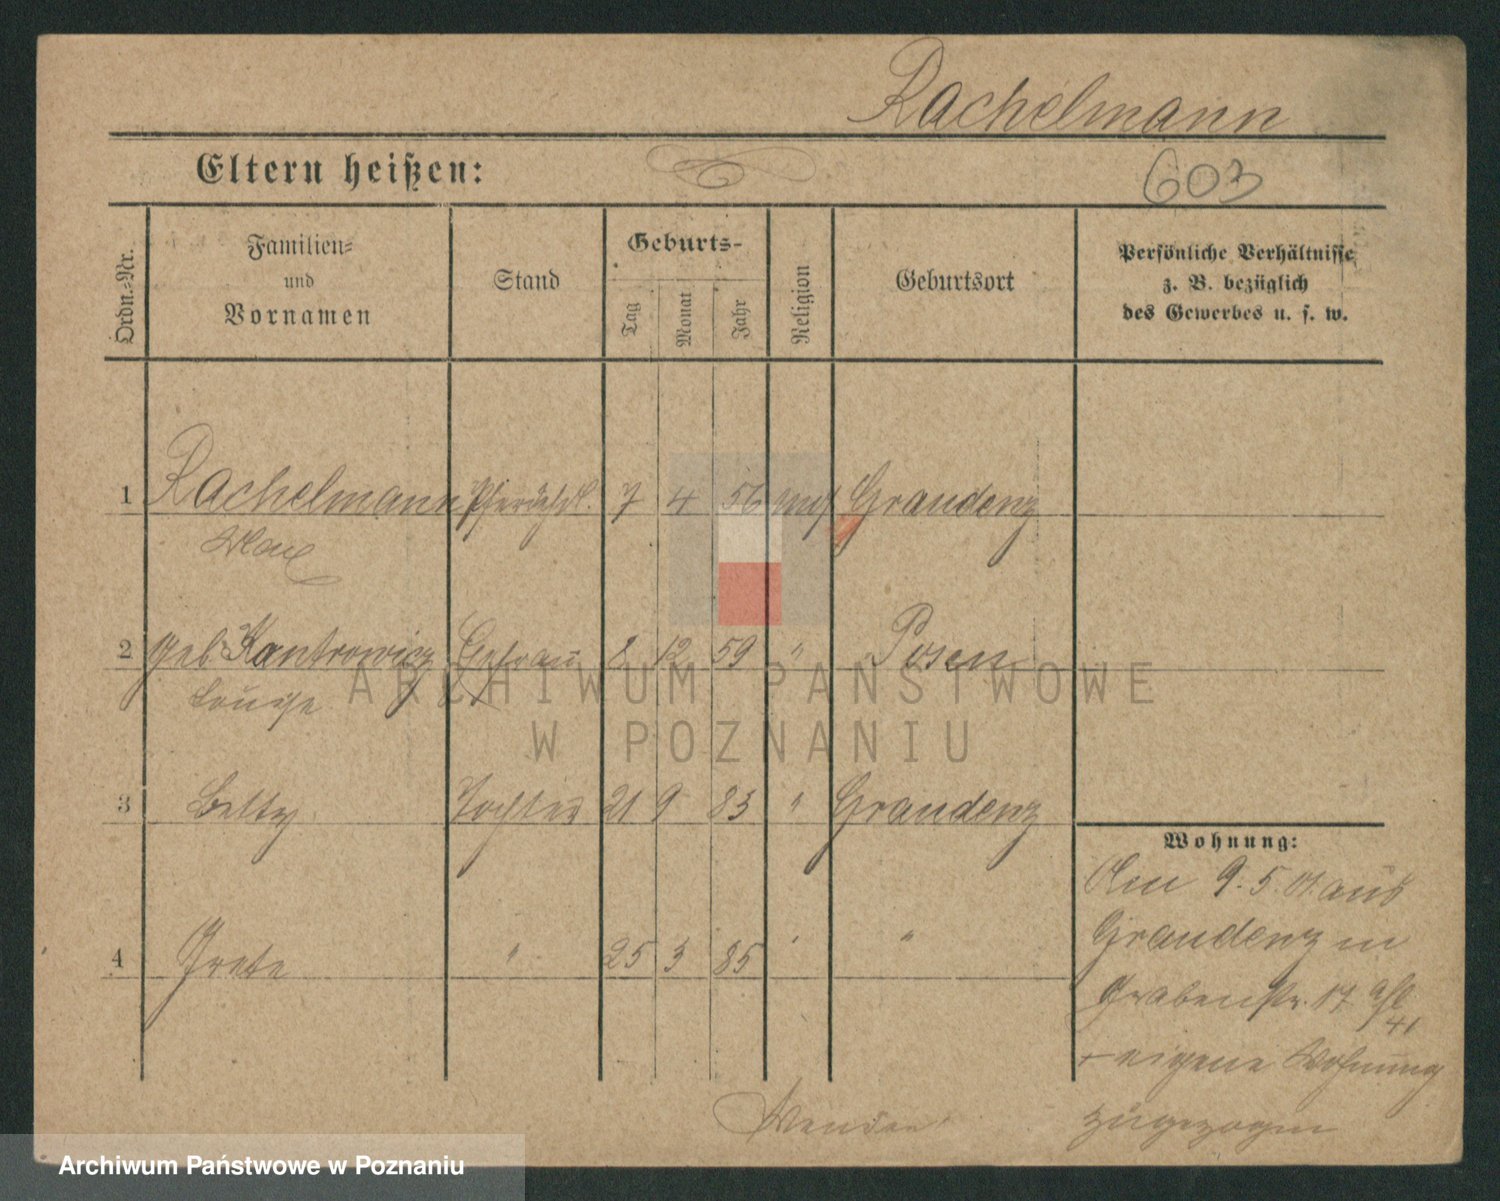 Rachelmann
Eltern heißen:
603
Ordn.-Nr.
Familien-
und
Vornamen
Stand
Geburts-
Tag
Monat
Jahr
Religion
Geburtsort
Persönliche Verhältnisse
z. B. bezüglich
des Gewerbes u. s. w.
1 Rachelmann 7 4 56 mos Graudenz
Max
2 geb Kantrowicz Ehefrau 8 12 59 " Posen
Louise
3 Betty Tochter 21 9 83 " Graudenz
4 Grete " 25 3 85 " "
Wohnung:
Am 9. 5. 01. aus
Graudenz in
Grabenstr. 17
eigene Wohnung
zugezogen
Wenden
ARCHIWUM PAŃSTWOWE
W POZNANIU
Archiwum Państwowe w Poznaniu